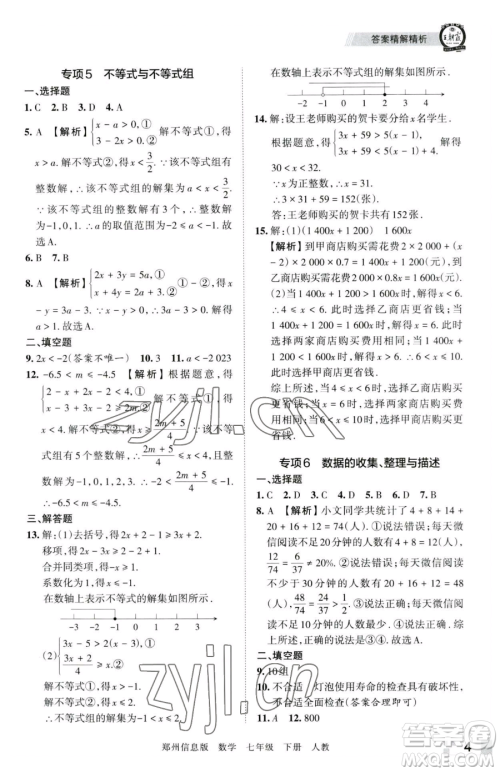 答案精解精析
王朝霞
专项5 不等式与不等式组
一、选择题
1. C 2. D 3. A 4. B
5. A 【解析】{x-a>0,① 3-2x>0,② 解不等式①,得
x>a. 解不等式②,得x<3/2. ∵该不等式组有整
数解,∴该不等式组的解集为a<x<3/2. ∵该
不等式组的整数解有3个,∴该不等式组的整
数解为-1,0,1. ∴a的取值范围为-2≤a<
-1. 故选A.
6. B 7. A
8. A 【解析】{2x+3y=5a,① x+4y=2a+3.② ①-②,得x
-y=3a-3. ∵x>y,∴x-y>0. ∴3a-3>0. 解
得a>1. 故选A.
二、填空题
9. 2x<-2(答案不唯一) 10. 3 11. a<-2 023
12. -6.5<m≤-4 【解析】根据题意,得
解答题
三、解答题
13. 解:(1)去括号,得2x-1≥3x-3.
移项,得2x-3x≥-3+1.
合并同类项,得-x≥-2.
系数化为1,得x≤2.
在数轴上表示不等式的解集如图所示.
-3 -2 -1 0 1 2 3
解不等式①,得x>-1.
解不等式②,得x≤2.
在数轴上表示不等式组的解集如图所示.
-2 -1 0 1 2 3 4
14. 解:设王老师购买的贺卡要分给x名学生.
根据题意,得{3x+59>5(x-1), 3x+59<5(x-1)+3. 解得
30<x<32.
∵x为正整数,∴x=31.
∴3x+59=152.
答:王老师购买的贺卡共有152张.
15. 解:(1)(1 400x+1 200) 1 600x
【解析】到甲商店购买需花费2×2 000+(x
-2)×2 000×0.7=1 400x+1 200(元),到
乙商店购买需花费2 000×0.8x=1 600x(元).
(2)当1 400x+1 200<1 600x时,解得
x>6. 此时选择甲商店更省钱;当
1 400x+1 200=1 600x时,解得x=6. 此
时选择两家商店费用相同;当1 400x+
1 200>1 600x时,解得x<6. 此时选择乙
商店更省钱.
综上所述,当x>6时,选择甲商店购买更
省钱;当x=6时,选择两家商店购买
费用相同;当x<6时,选择乙商店购买更
省钱.
专项6 数据的收集、整理与描述
一、选择题
1. C 2. D 3. A 4. C 5. D 6. D 7. B
8. A 【解析】小文同学共统计了4+8+14+
20+16+12=74(人). ①说法错误;每天微
信阅读不足20分钟的人数有4+8=12(人),
12/74=6/37≠20%. ②说法错误;每天微信阅读
30~40分钟的人数最多. ③说法正确;每天微
信阅读不少于30分钟的人数有20+16+12=
48(人),48/74=24/37>1/2,则选择每天微信阅读不
少于30分钟的人数超过调查总人数的一半.
④说法正确. 综上,说法正确的是③④. 故选A.
二、填空题
9. 10组
10. 不合适 灯泡使用寿命的检查具有破坏
性,不合适全面检查(答案合理即可)
11. A 12. 800
郑州信息版 数学 七年级 下册 人教
4
zyjl.cn